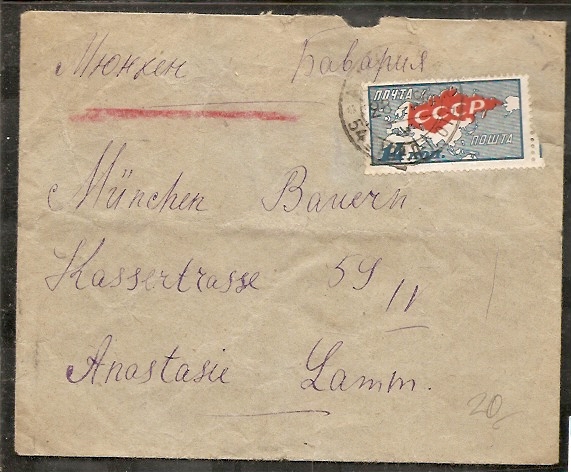 Мюнхен Бавария
ПОЧТА
СССР
ПОШТА
14 КОП.
München Bauern.
Kassertrasse 59
II
Anastasie Lamm.
20